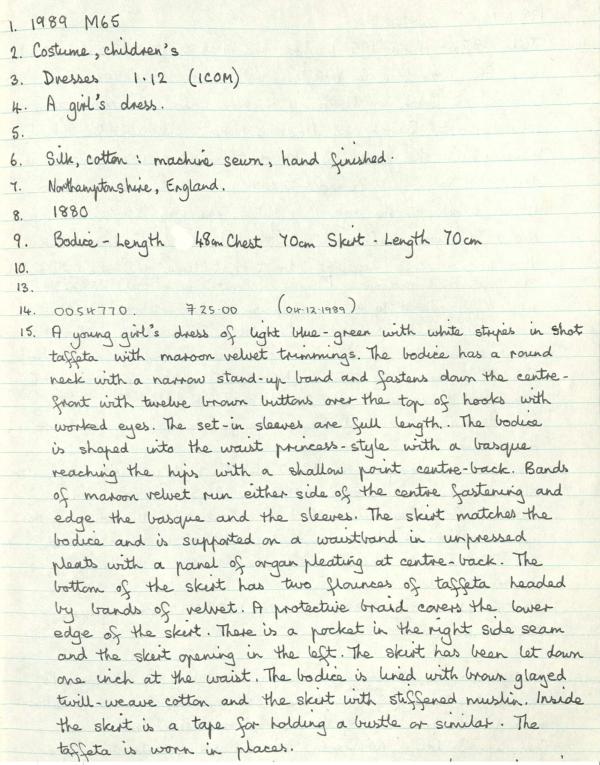 1. 1989 M65
2. Costume, children's
3. Dresses 1.12 (ICOM)
4. A girl's dress.
5.
6. Silk, cotton: machine sewn, hand finished.
7. Northamptonshire, England.
8. 1880
9. Bodice - Length 48cm Chest 70cm Skirt - Length 70cm
10.
13.
14. 0054770. 725.00 (04.12.1989)
15. A young girl's dress of light blue-green with white stripes in shot
taffeta with maroon velvet trimmings. The bodice has a round
neck with a narrow stand-up band and fastens down the centre-
front with twelve brown buttons over the top of hooks with
worked eyes. The set-in sleeves are full length. The bodice
is shaped into the waist princess-style with a basque
reaching the hips with a shallow point centre-back. Bands
of maroon velvet run either side of the centre fastening and
edge the basque and the sleeves. The skirt matches the
bodice and is supported on a waistband in unpressed
pleats with a panel of organ pleating at centre-back. The
bottom of the skirt has two flounces of taffeta headed
by bands of velvet. A protective braid covers the lower
edge of the skirt. There is a pocket in the right side seam
and the skirt opening in the left. The skirt has been let down
one inch at the waist. The bodice is lined with brown glazed
twill-weave cotton and the skirt with stiffened muslin. Inside
the skirt is a tape for holding a bustle or similar. The
taffeta is worn in places.